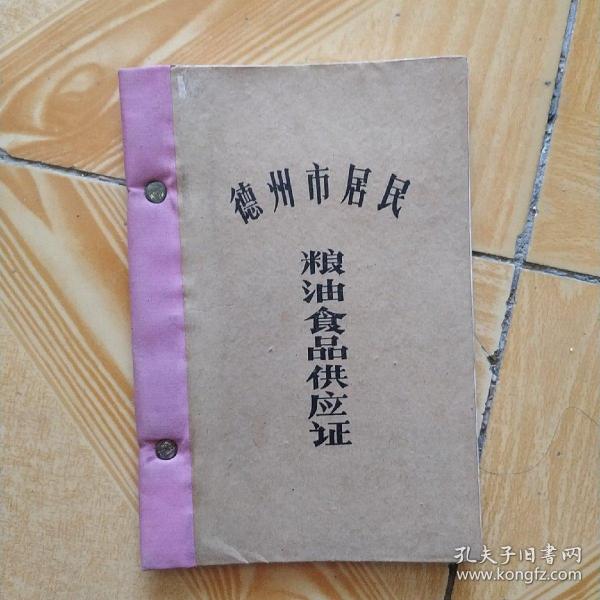 德州市居民
粮油食品供应证
孔夫子旧書网
www.kongfz.com